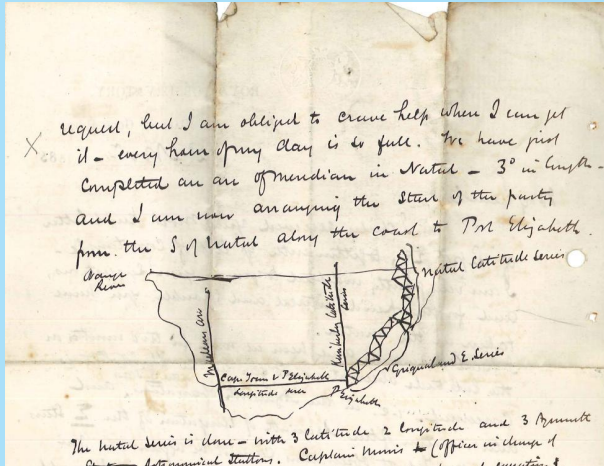 X request, but I am obliged to crave help when I can get
it – every hour of my day is so full. We have just
completed an arc of meridian in Natal – 3° in length –
and I am now arranging the start of the party
from the S of Natal along the coast to Port Elizabeth.
Orange
River
Natal Latitude Series
Maclears arc
Kimberley Latitude
Series
Cape Town & P Elizabeth
Longitude Series
P Elizabeth
Griqualand E. Series
The Natal Series is done – with 3 Latitude 2 Longitude and 3 Azimuth
Astronomical Stations. Captain Morris (Officer in charge of